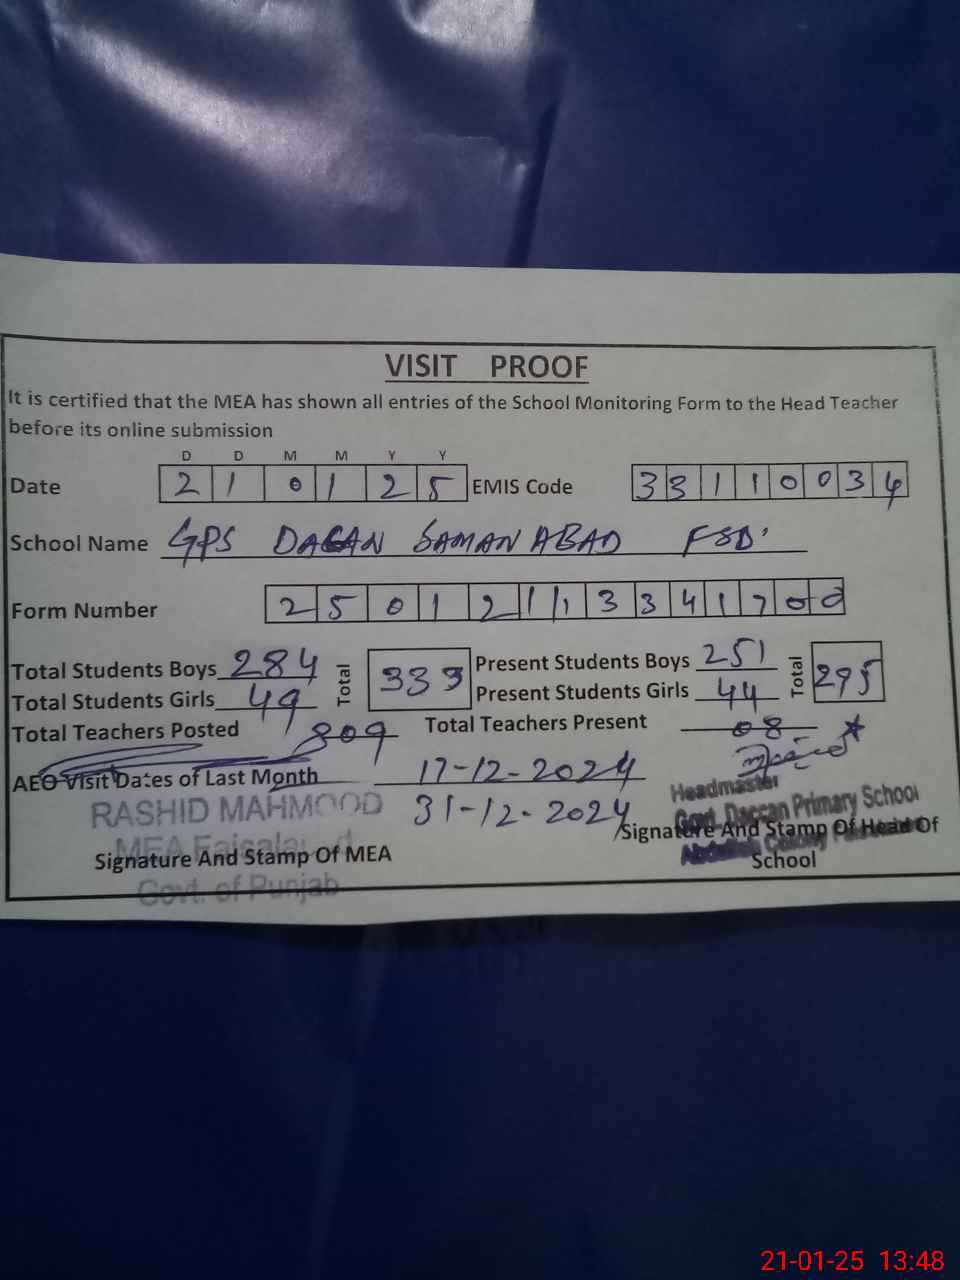 VISIT PROOF
It is certified that the MEA has shown all entries of the School Monitoring Form to the Head Teacher
before its online submission
D D M M Y Y
Date 2 1 0 1 2 5 EMIS Code 3 3 1 1 0 0 3 4
School Name GPS DACAN SAMANABAD FSD
Form Number 2 5 0 1 2 1 1 3 3 4 1 7 0 0
Total Students Boys 284 Total 333 Present Students Boys 251 Total 295
Total Students Girls 49 Present Students Girls 44
Total Teachers Posted 09 Total Teachers Present 08
AEO Visit Dates of Last Month 17-12-2024
31-12-2024
RASHID MAHMOOD
MEA Faisalabad
Govt. of Punjab
Signature And Stamp Of MEA
Headmaster
Govt. Daccan Primary School
Abdullah Colony
Signature And Stamp Of Head Of
School
21-01-25 13:48